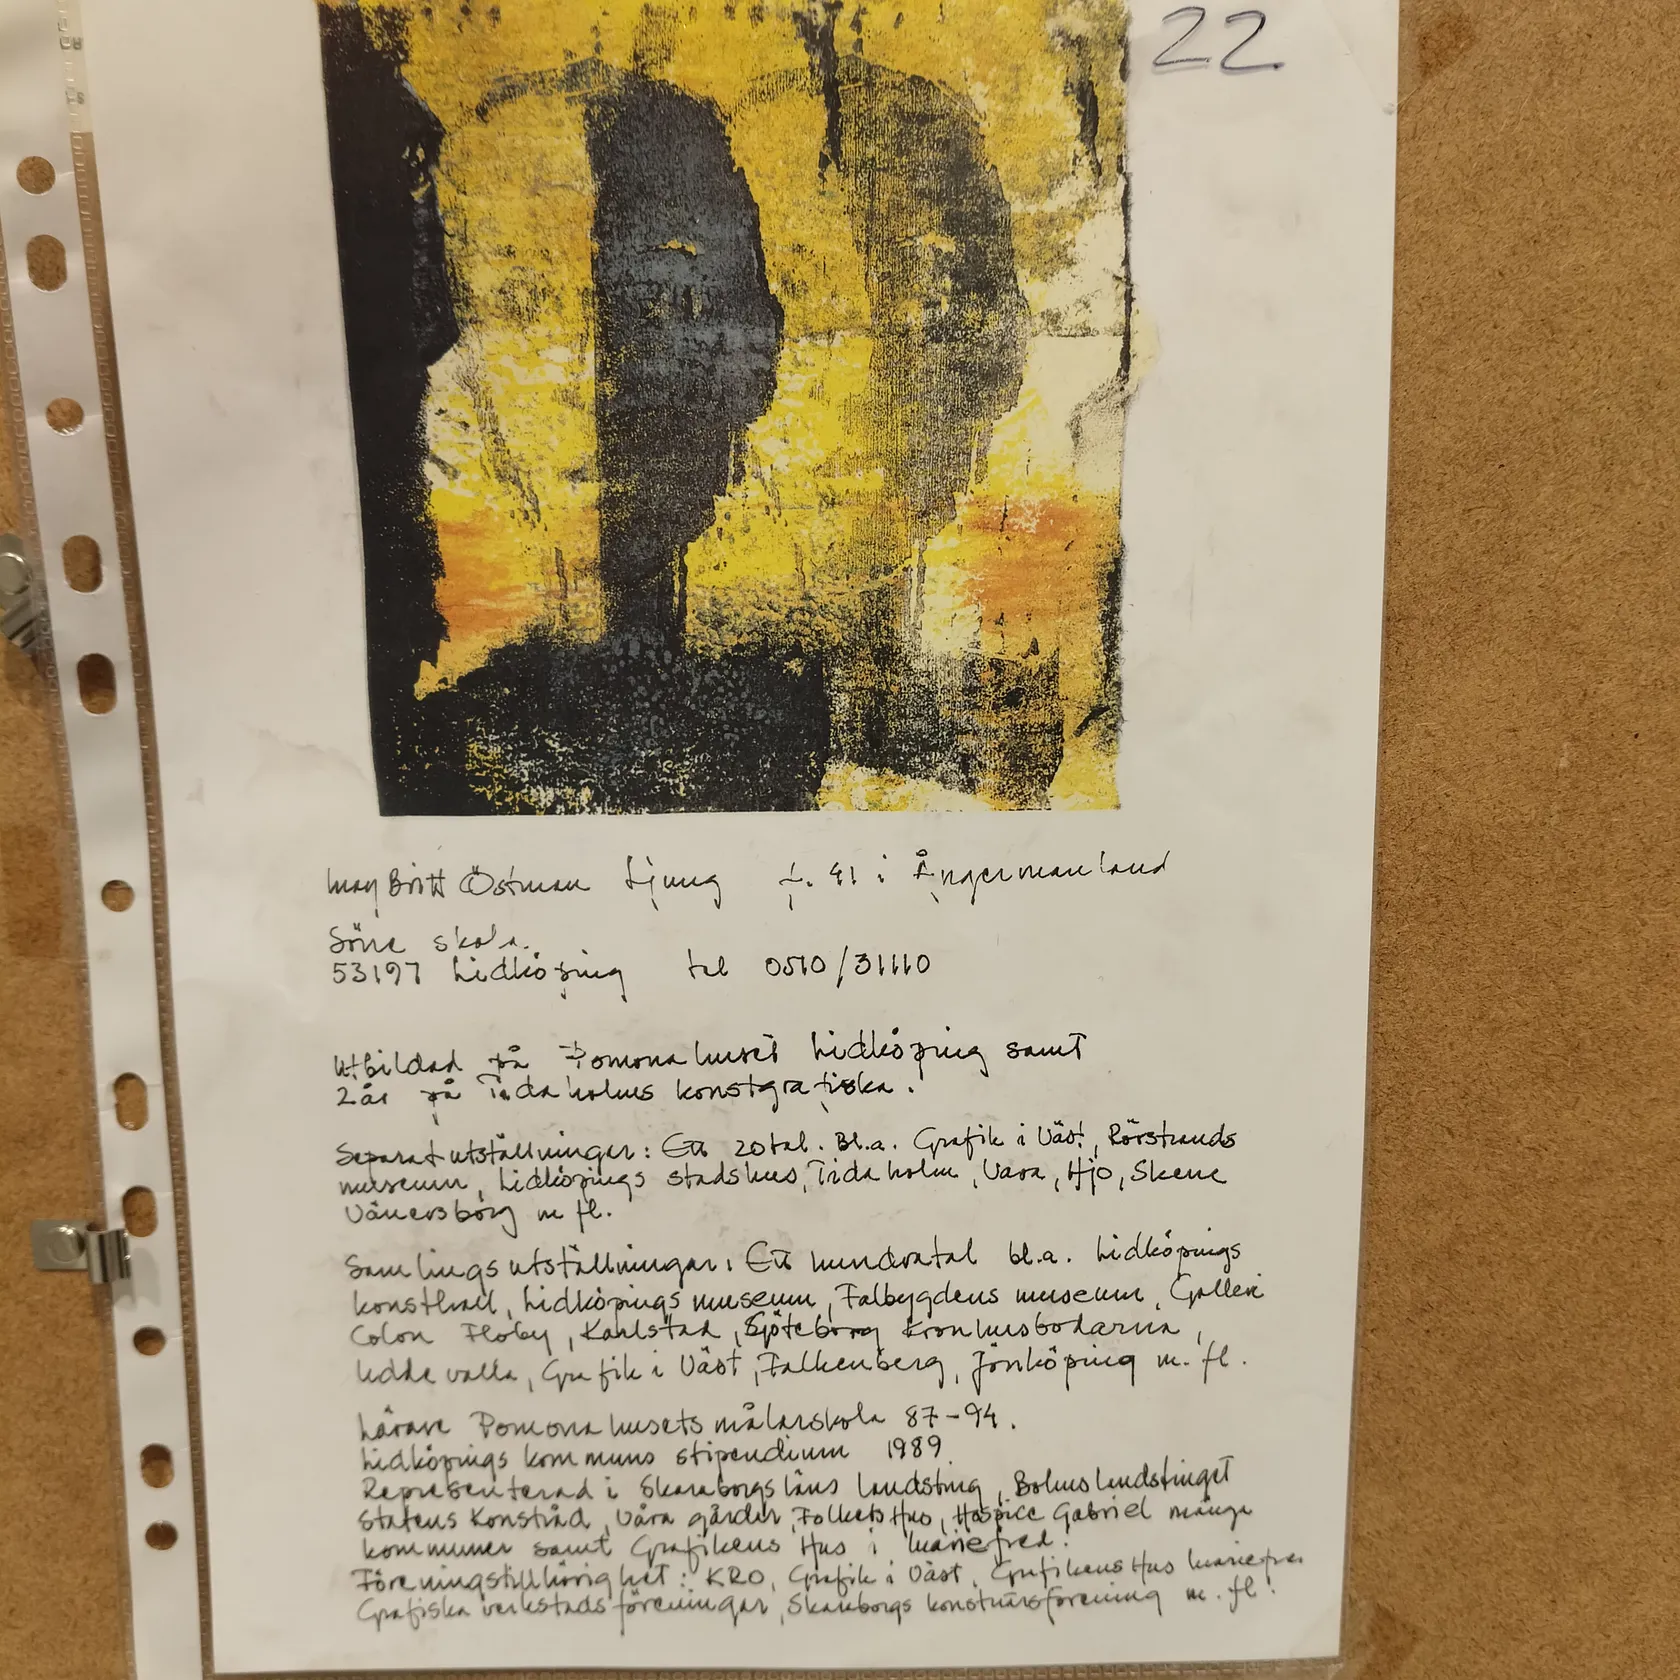 22
May Britt Östman Ljung f. 41 i Ångermanland
Söne skola.
53197 Lidköping tel 0510/31110
Utbildad på Pomonahuset Lidköping samt
2år på Tidaholms konstgrafiska.
Separatutställningar: Ett 20tal. Bl.a. Grafik i Väst, Rörstrands
museum, Lidköpings stadshus, Tidaholm, Vara, Hjo, Skene
Vänersborg m fl.
Samlingsutställningar: Ett hundratal bl.a. Lidköpings
konsthall, Lidköpings museum, Falbygdens museum, Galleri
Colon Floby, Karlstad, Göteborg Kronhusbodarna,
Uddevalla, Grafik i Väst, Falkenberg, Jönköping m. fl.
Lärare Pomonahusets målarskola 87-94.
Lidköpings kommuns stipendium 1989
Representerad i Skaraborgs läns landsting, Bohuslandstinget
Statens Konstråd, Våra gårdar, Folkets Hus, Hospice Gabriel många
kommuner samt Grafikens Hus i Mariefred.
Föreningstillhörighet: KRO, Grafik i Väst, Grafikens Hus Mariefre
Grafiska verkstadsföreningar, Skaraborgs konstnärsförening m. fl.